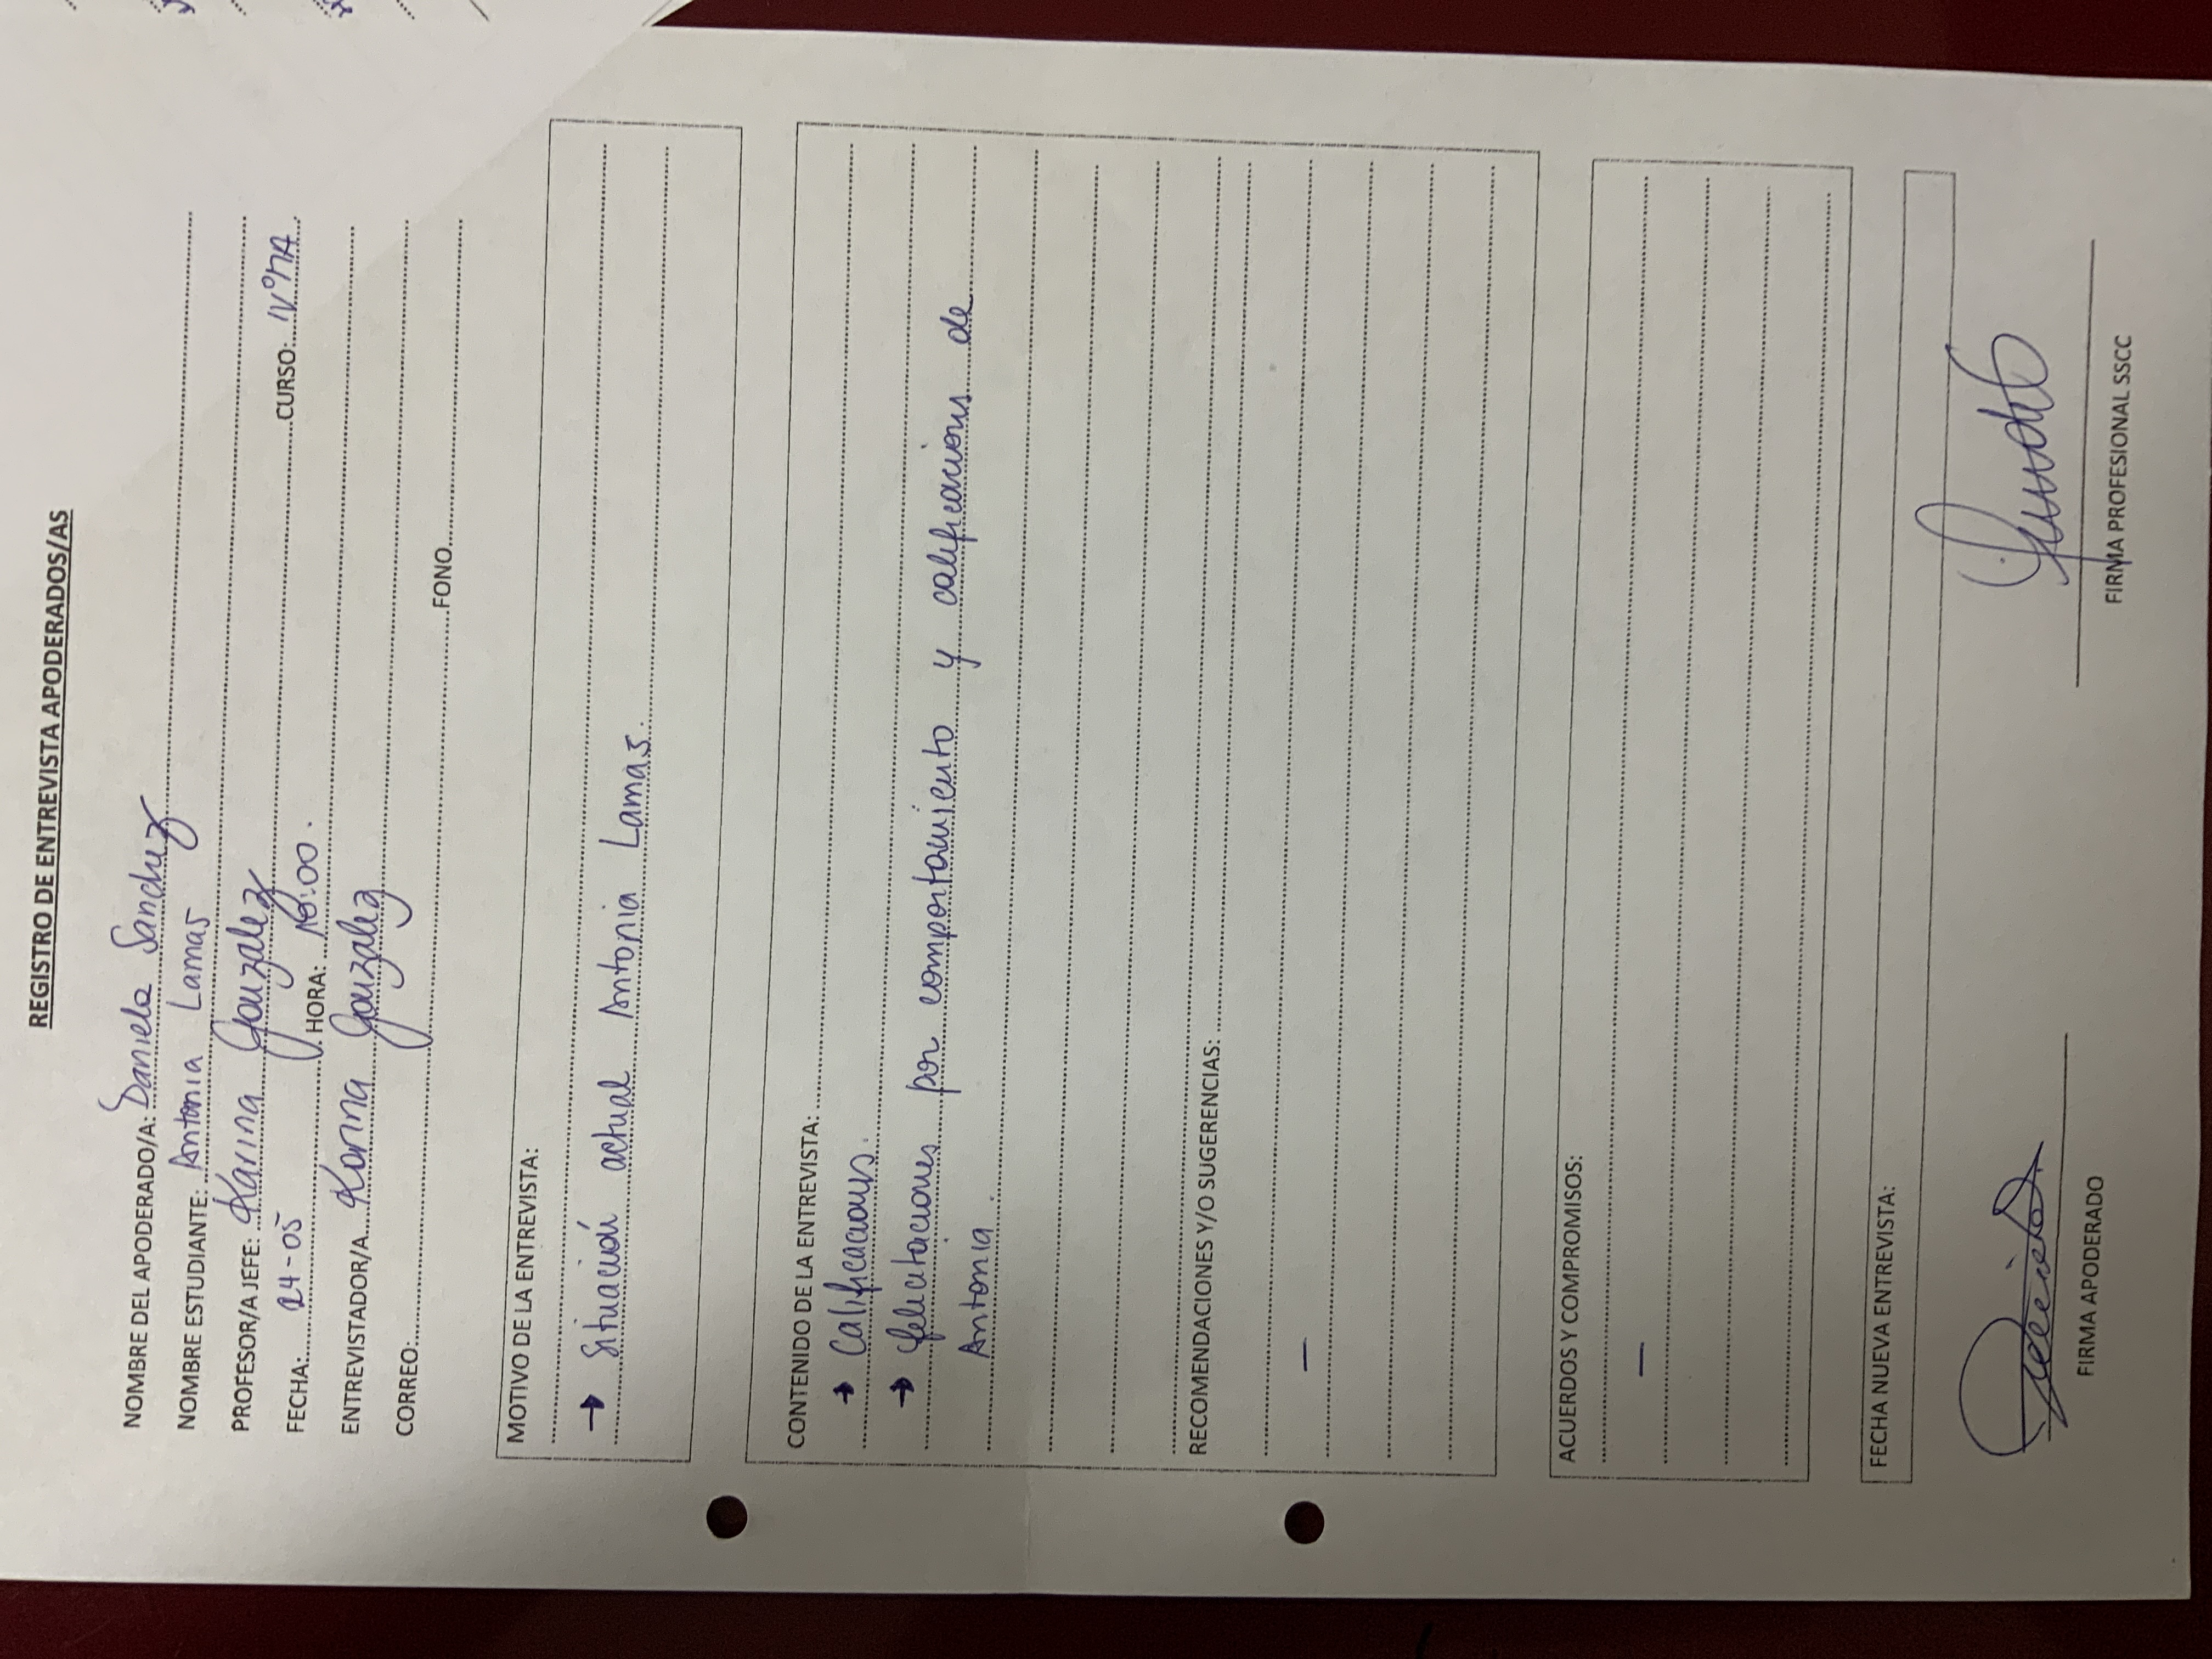 REGISTRO DE ENTREVISTA APODERADOS/AS
NOMBRE DEL APODERADO/A: Daniela Sanchez
NOMBRE ESTUDIANTE: Antonia Lamas
PROFESOR/A JEFE: Karina Gonzalez
FECHA: 24-05 HORA: :00. CURSO: IVºMA
ENTREVISTADOR/A. Karina Gonzalez
CORREO: FONO
MOTIVO DE LA ENTREVISTA:
→ Situación actual Antonia Lamas.
CONTENIDO DE LA ENTREVISTA:
→ Calificaciones.
→ felicitaciones por comportamiento y calificaciones de
Antonia.
RECOMENDACIONES Y/O SUGERENCIAS:
—
ACUERDOS Y COMPROMISOS:
—
FECHA NUEVA ENTREVISTA:
FIRMA APODERADO FIRMA PROFESIONAL SSCC